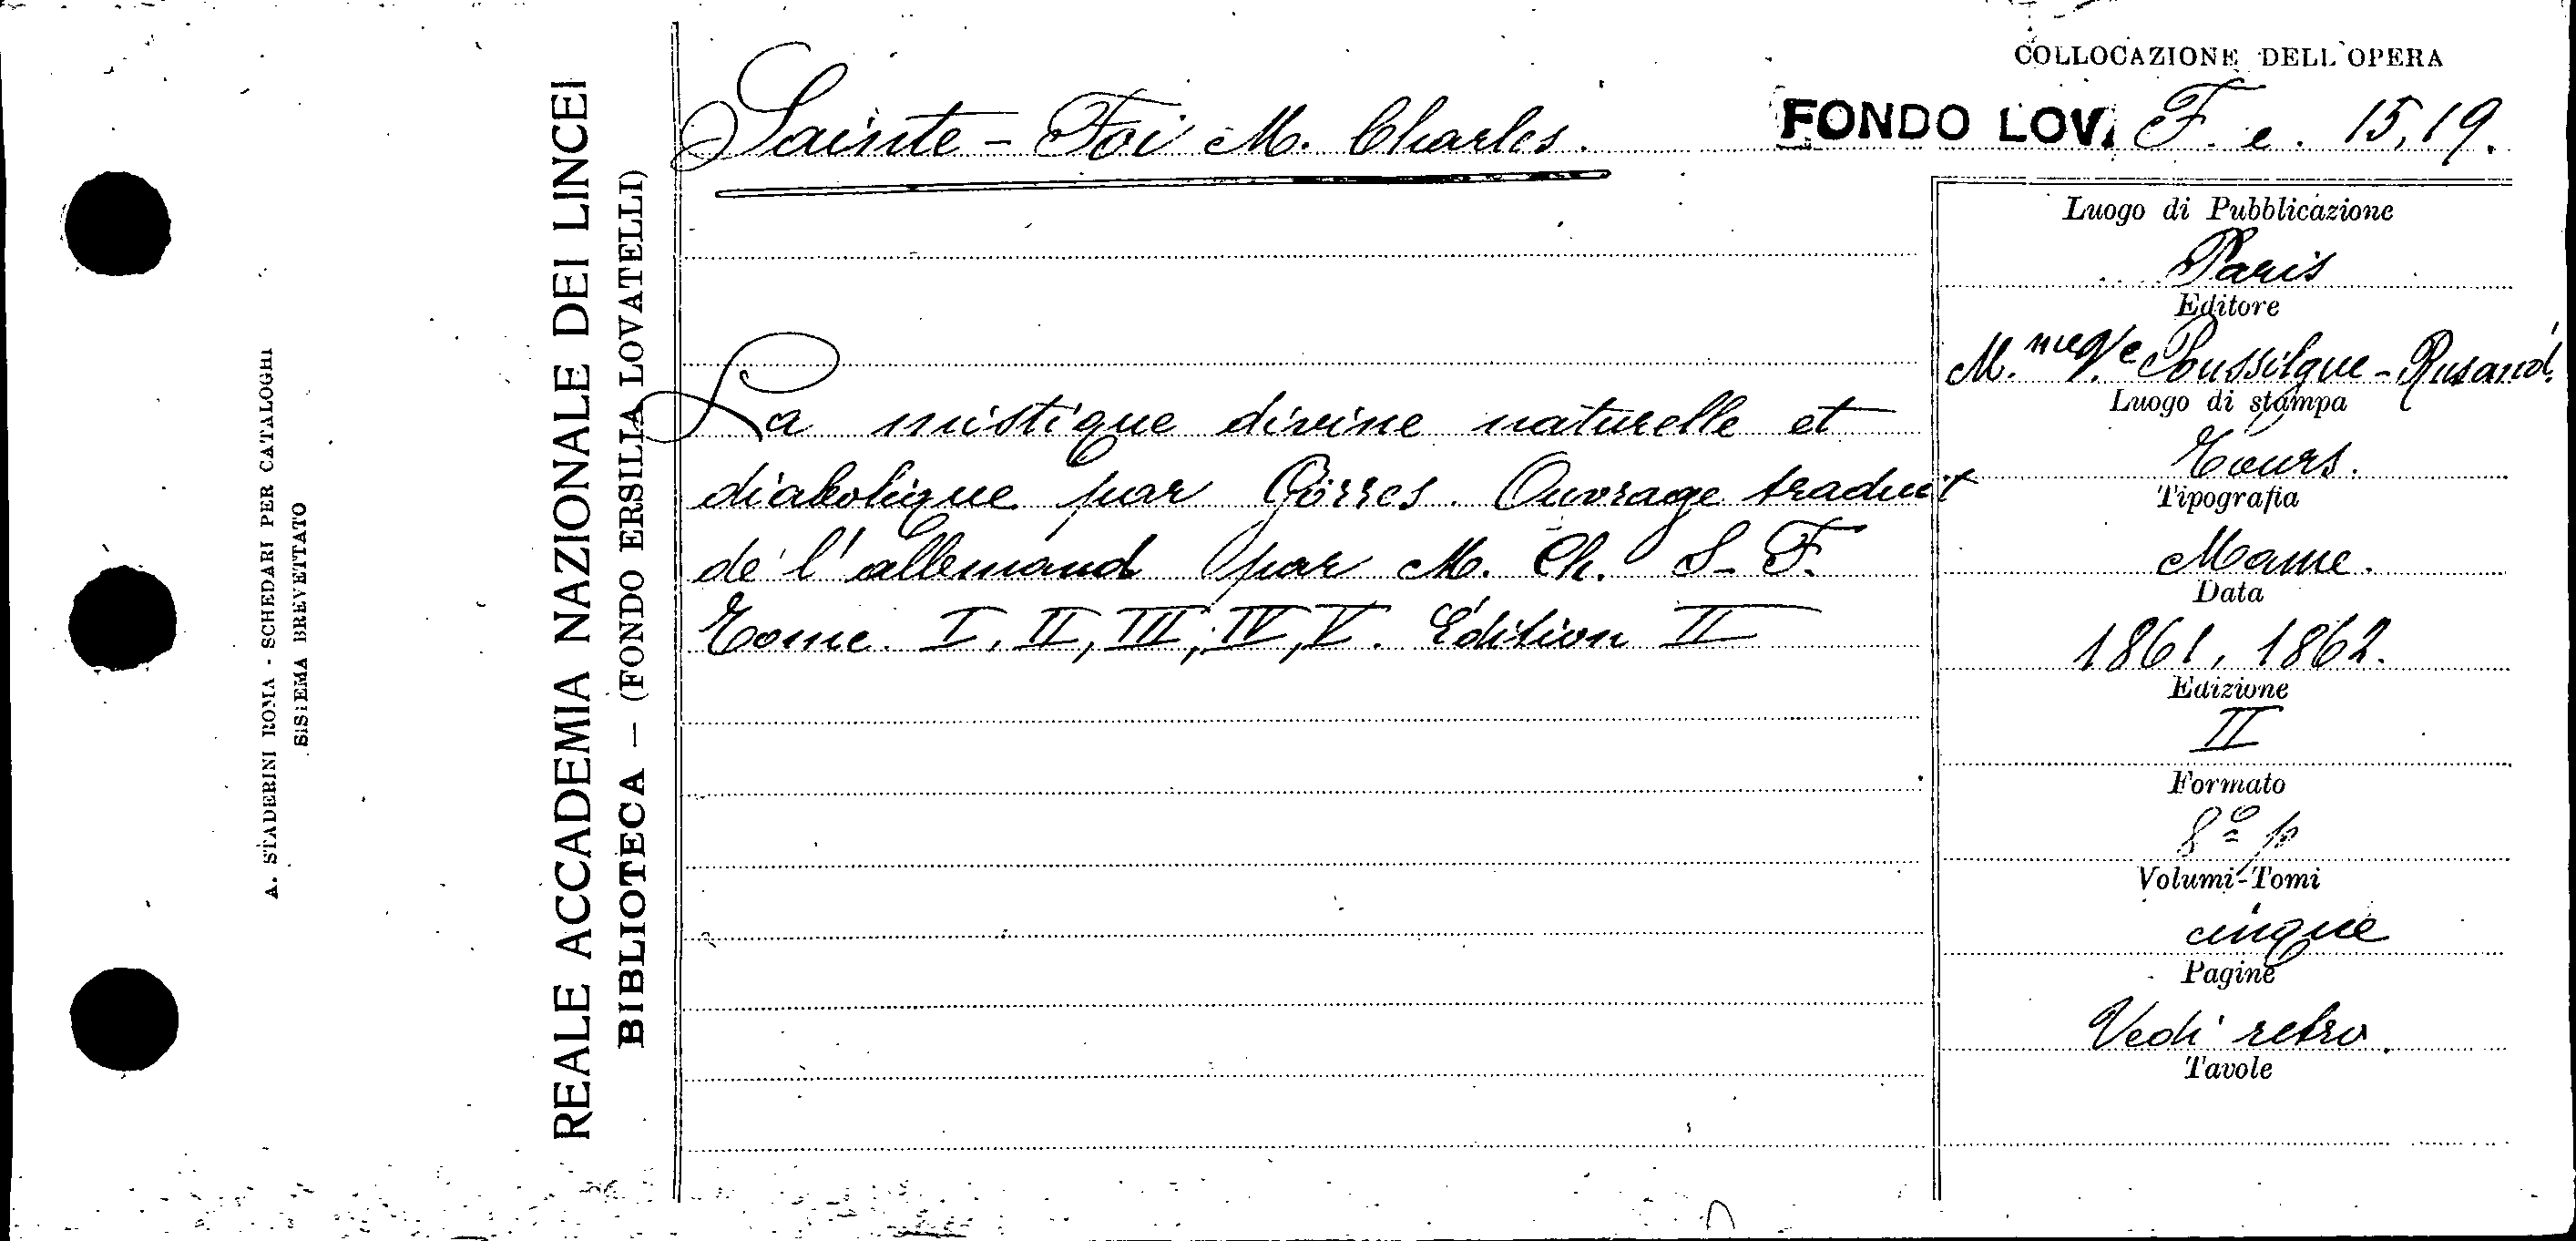 A. STADERINI ROMA - SCHEDARI PER CATALOGHI
SISTEMA BREVETTATO
REALE ACCADEMIA NAZIONALE DEI LINCEI
BIBLIOTECA — (FONDO ERSILIA LOVATELLI)
COLLOCAZIONE DELL'OPERA
Sainte-Foi M. Charles.
FONDO LOV. F. e. 15,19.
La mistique divine naturelle et
diabolique par Görres. Ouvrage traduit
de l'allemand par M. Ch. S-F.
Tome I, II, III, IV, V. Édition II
Luogo di Pubblicazione
Paris
Editore
M.me Ve Poussilgue-Rusand.
Luogo di stampa
Tours.
Tipografia
Mame.
Data
1861, 1862.
Edizione
II
Formato
8º p
Volumi-Tomi
cinque
Pagine
Vedi retro.
Tavole